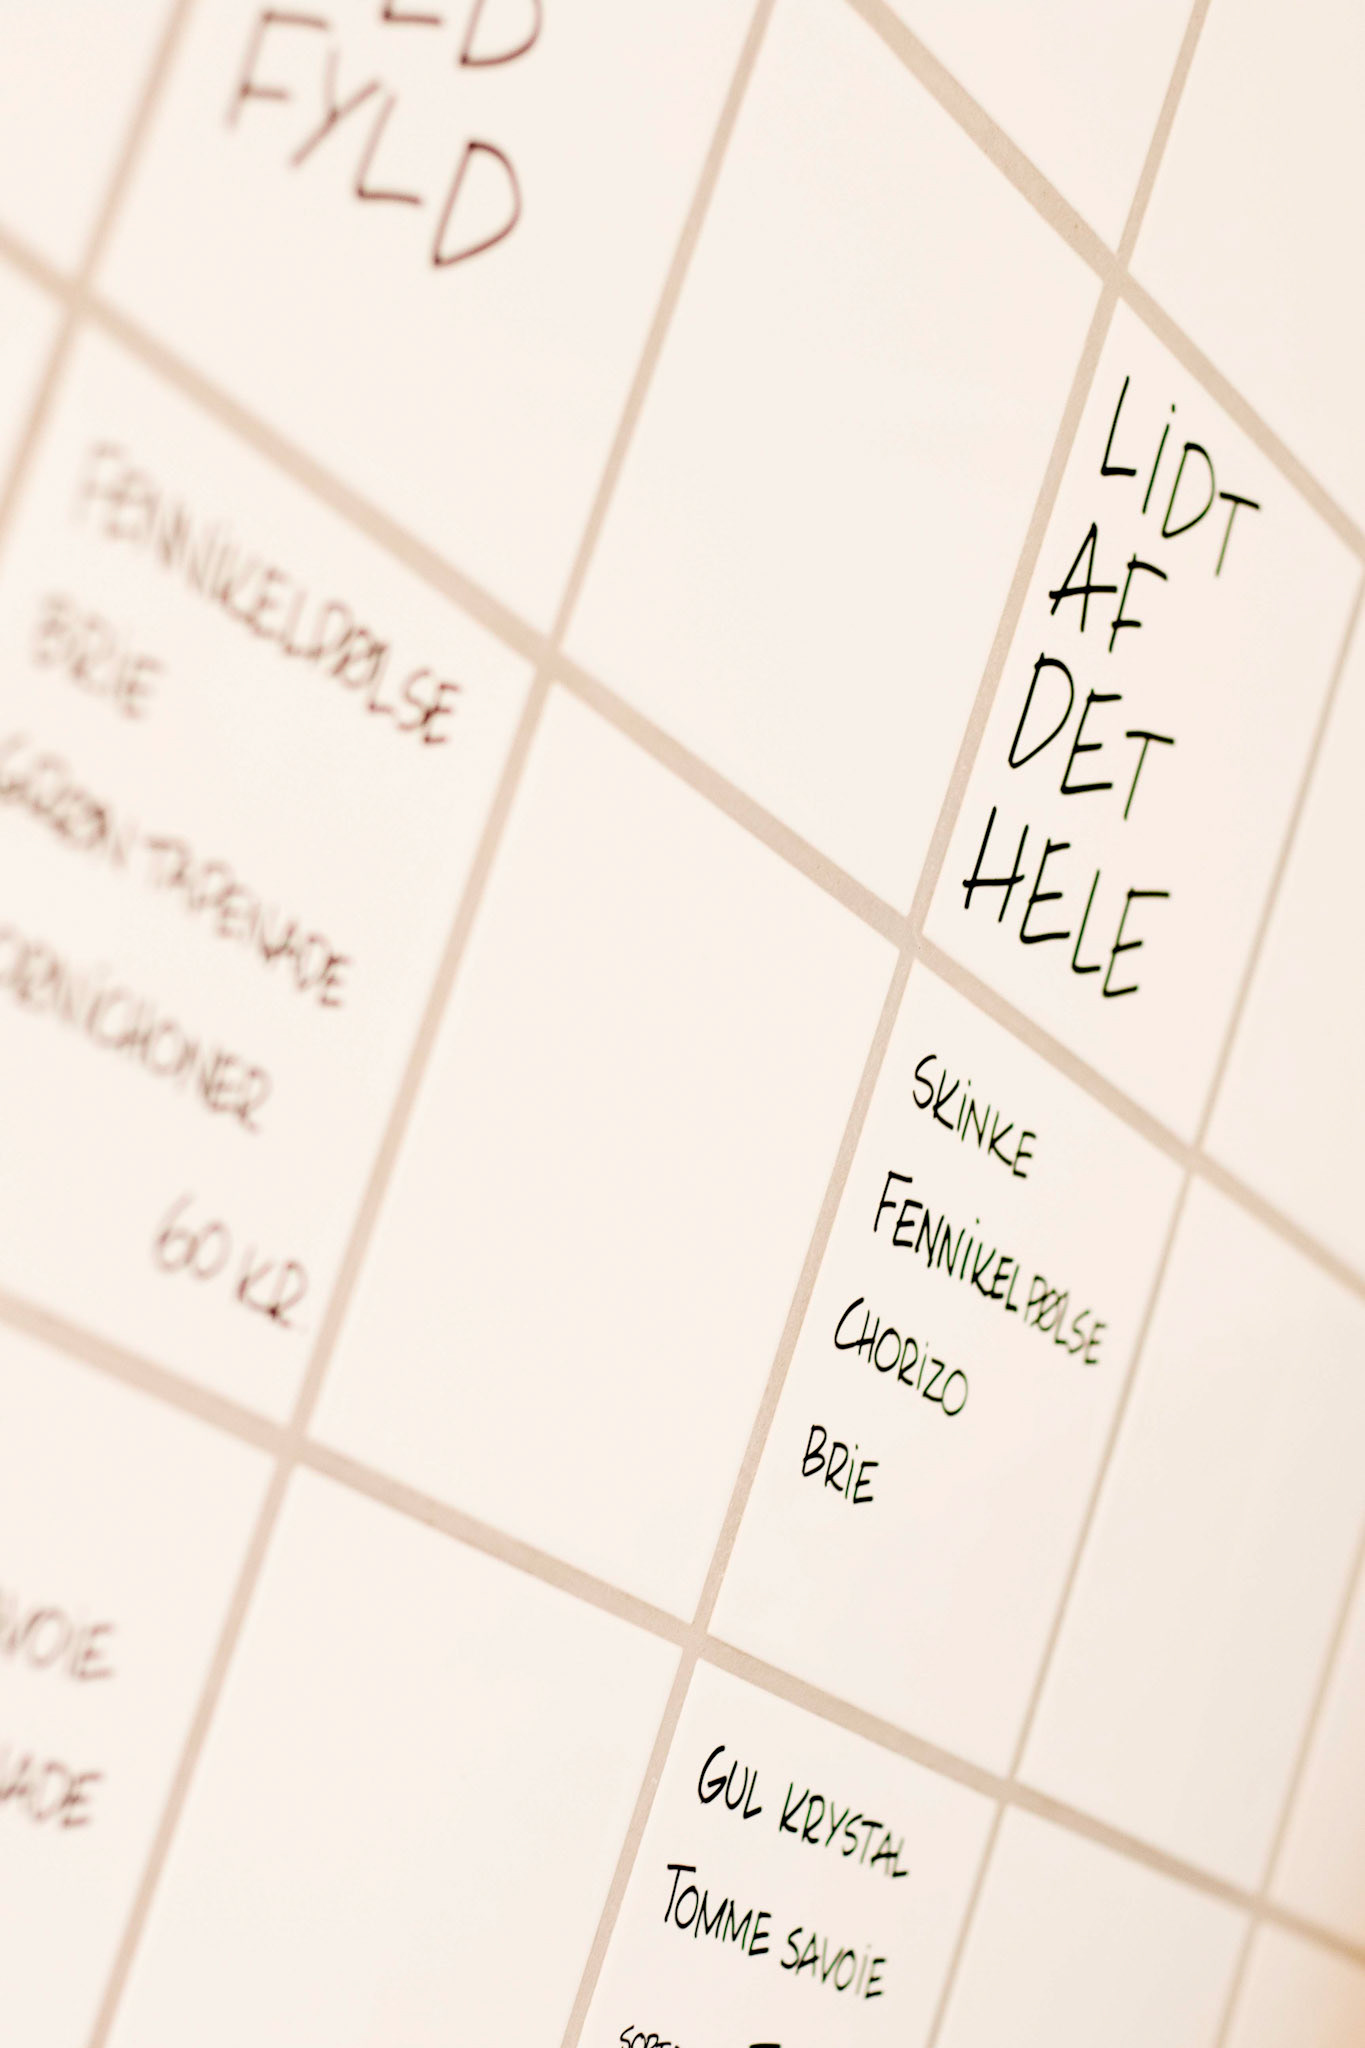 FYLD
FENNIKELPØLSE
BRIE
GRØN TAPENADE
CORNICHONER
60 KR
LiDT
AF
DET
HELE
SKiNKE
FENNiKELPØLSE
CHORiZO
BRiE
GUL KRYSTAL
TOMME SAVOiE